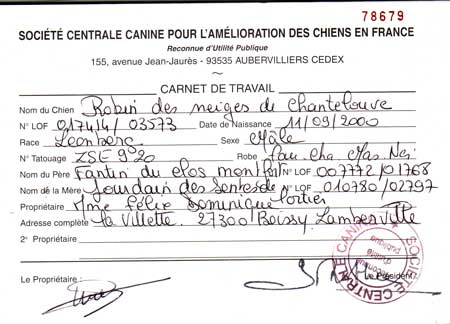 78679
SOCIÉTÉ CENTRALE CANINE POUR L'AMÉLIORATION DES CHIENS EN FRANCE
Reconnue d'Utilité Publique
155, avenue Jean-Jaurès - 93535 AUBERVILLIERS CEDEX
CARNET DE TRAVAIL
Nom du Chien Robin des neiges de Chantelouve
N° LOF 017414/03573 Date de Naissance 11/09/2000
Race Leonberg Sexe Mâle
N° Tatouage ZSE 920 Robe Fau. Cha. Mas. Noi
Nom du Père Fantin du clos montfort N° LOF 007772/01768
Nom de la Mère Jourdain des N° LOF 010780/02797
Propriétaire Mme Félix Dominique Portier
Adresse complète la Villette 27300 Boissy Lamberville
2e Propriétaire
Le Propriétaire : Le Président,
SOCIÉTÉ CENTRALE CANINE
Reconnue d'utilité Publique